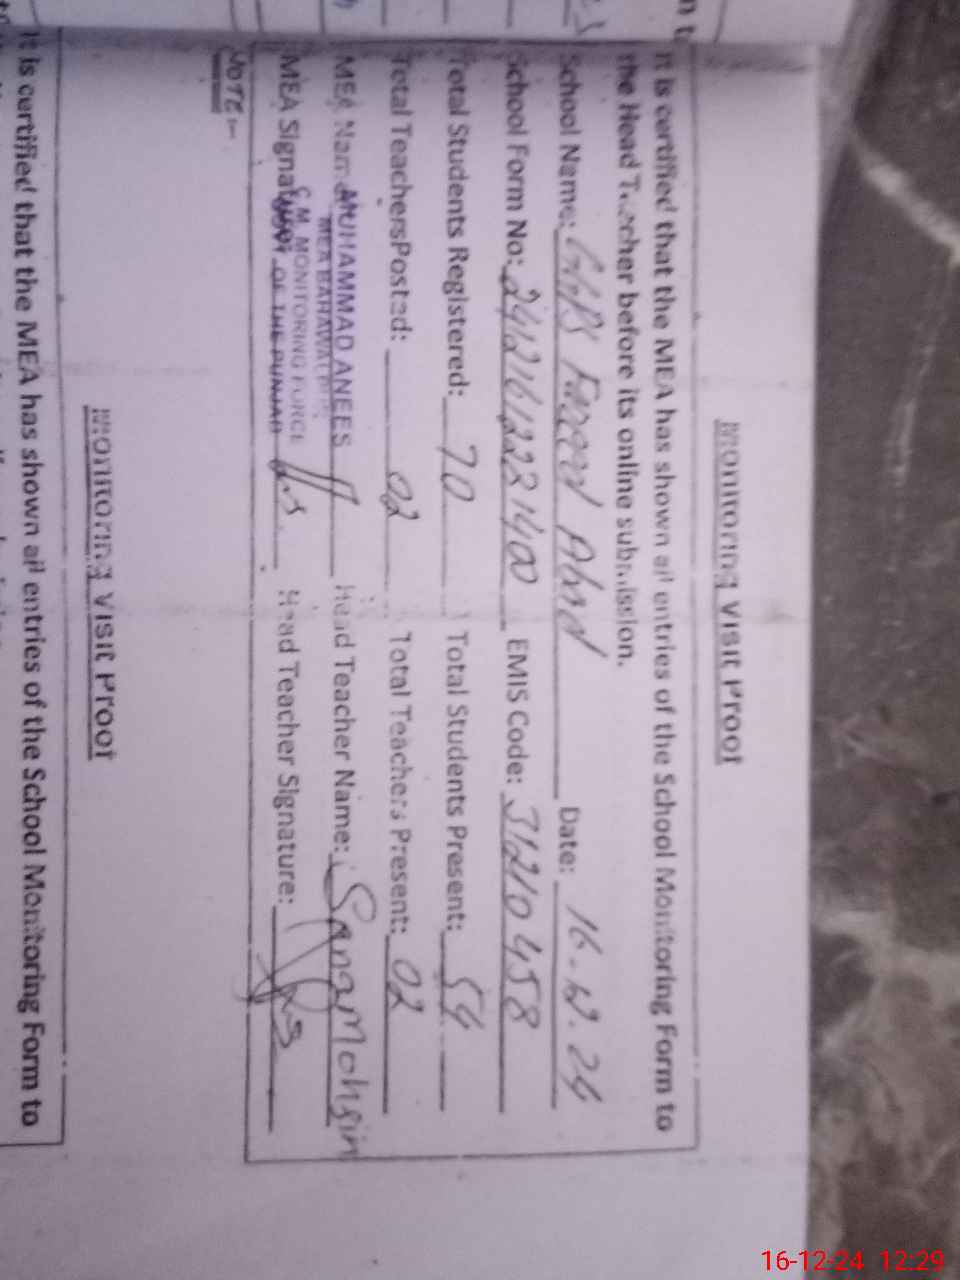 Monitoring Visit Proof
It is certified that the MEA has shown all entries of the School Monitoring Form to
the Head Teacher before its online submission.
School Name: Abad Date: 16-12-24
School Form No: EMIS Code: 31210458
Total Students Registered: 70 Total Students Present: 54
Total Teachers Posted: 02 Total Teachers Present: 02
MEA Name: MUHAMMAD ANEES Head Teacher Name: Sana Mohsin
MEA BAHAWALPUR
C.M. MONITORING FORCE
MEA Signature: GOVT OF THE PUNJAB Head Teacher Signature:
NOTE:-
Monitoring Visit Proof
It is certified that the MEA has shown all entries of the School Monitoring Form to
16-12-24 12:29